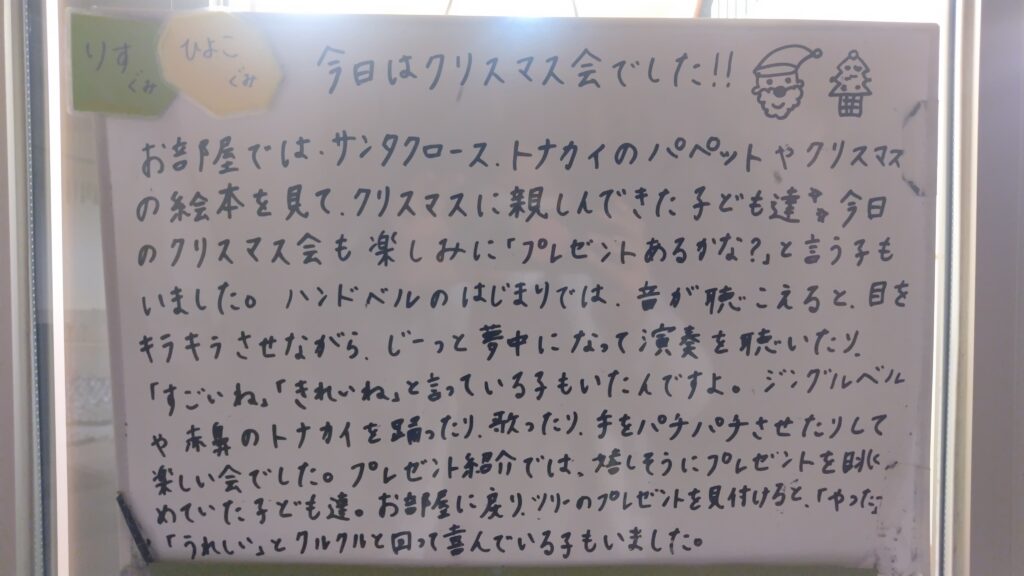 りす
ぐみ
ひよこ
ぐみ
今日はクリスマス会でした!!
お部屋では、サンタクロース、トナカイのパペットやクリスマス
の絵本を見て、クリスマスに親しんできた子ども達 今日
のクリスマス会も楽しみに「プレゼントあるかな?」と言う子も
いました。 ハンドベルのはじまりでは、音が聴こえると、目を
キラキラさせながら、じーっと夢中になって演奏を聴いたり、
「すごいね」「きれいね」と言っている子もいたんですよ。 ジングルベル
や赤鼻のトナカイを踊ったり、歌ったり、手をパチパチさせたりして
楽しい会でした。プレゼント紹介では、嬉しそうにプレゼントを眺
めていた子ども達。お部屋に戻り、ツリーのプレゼントを見付けると、「やった」
「うれしい」とクルクルと回って喜んでいる子もいました。